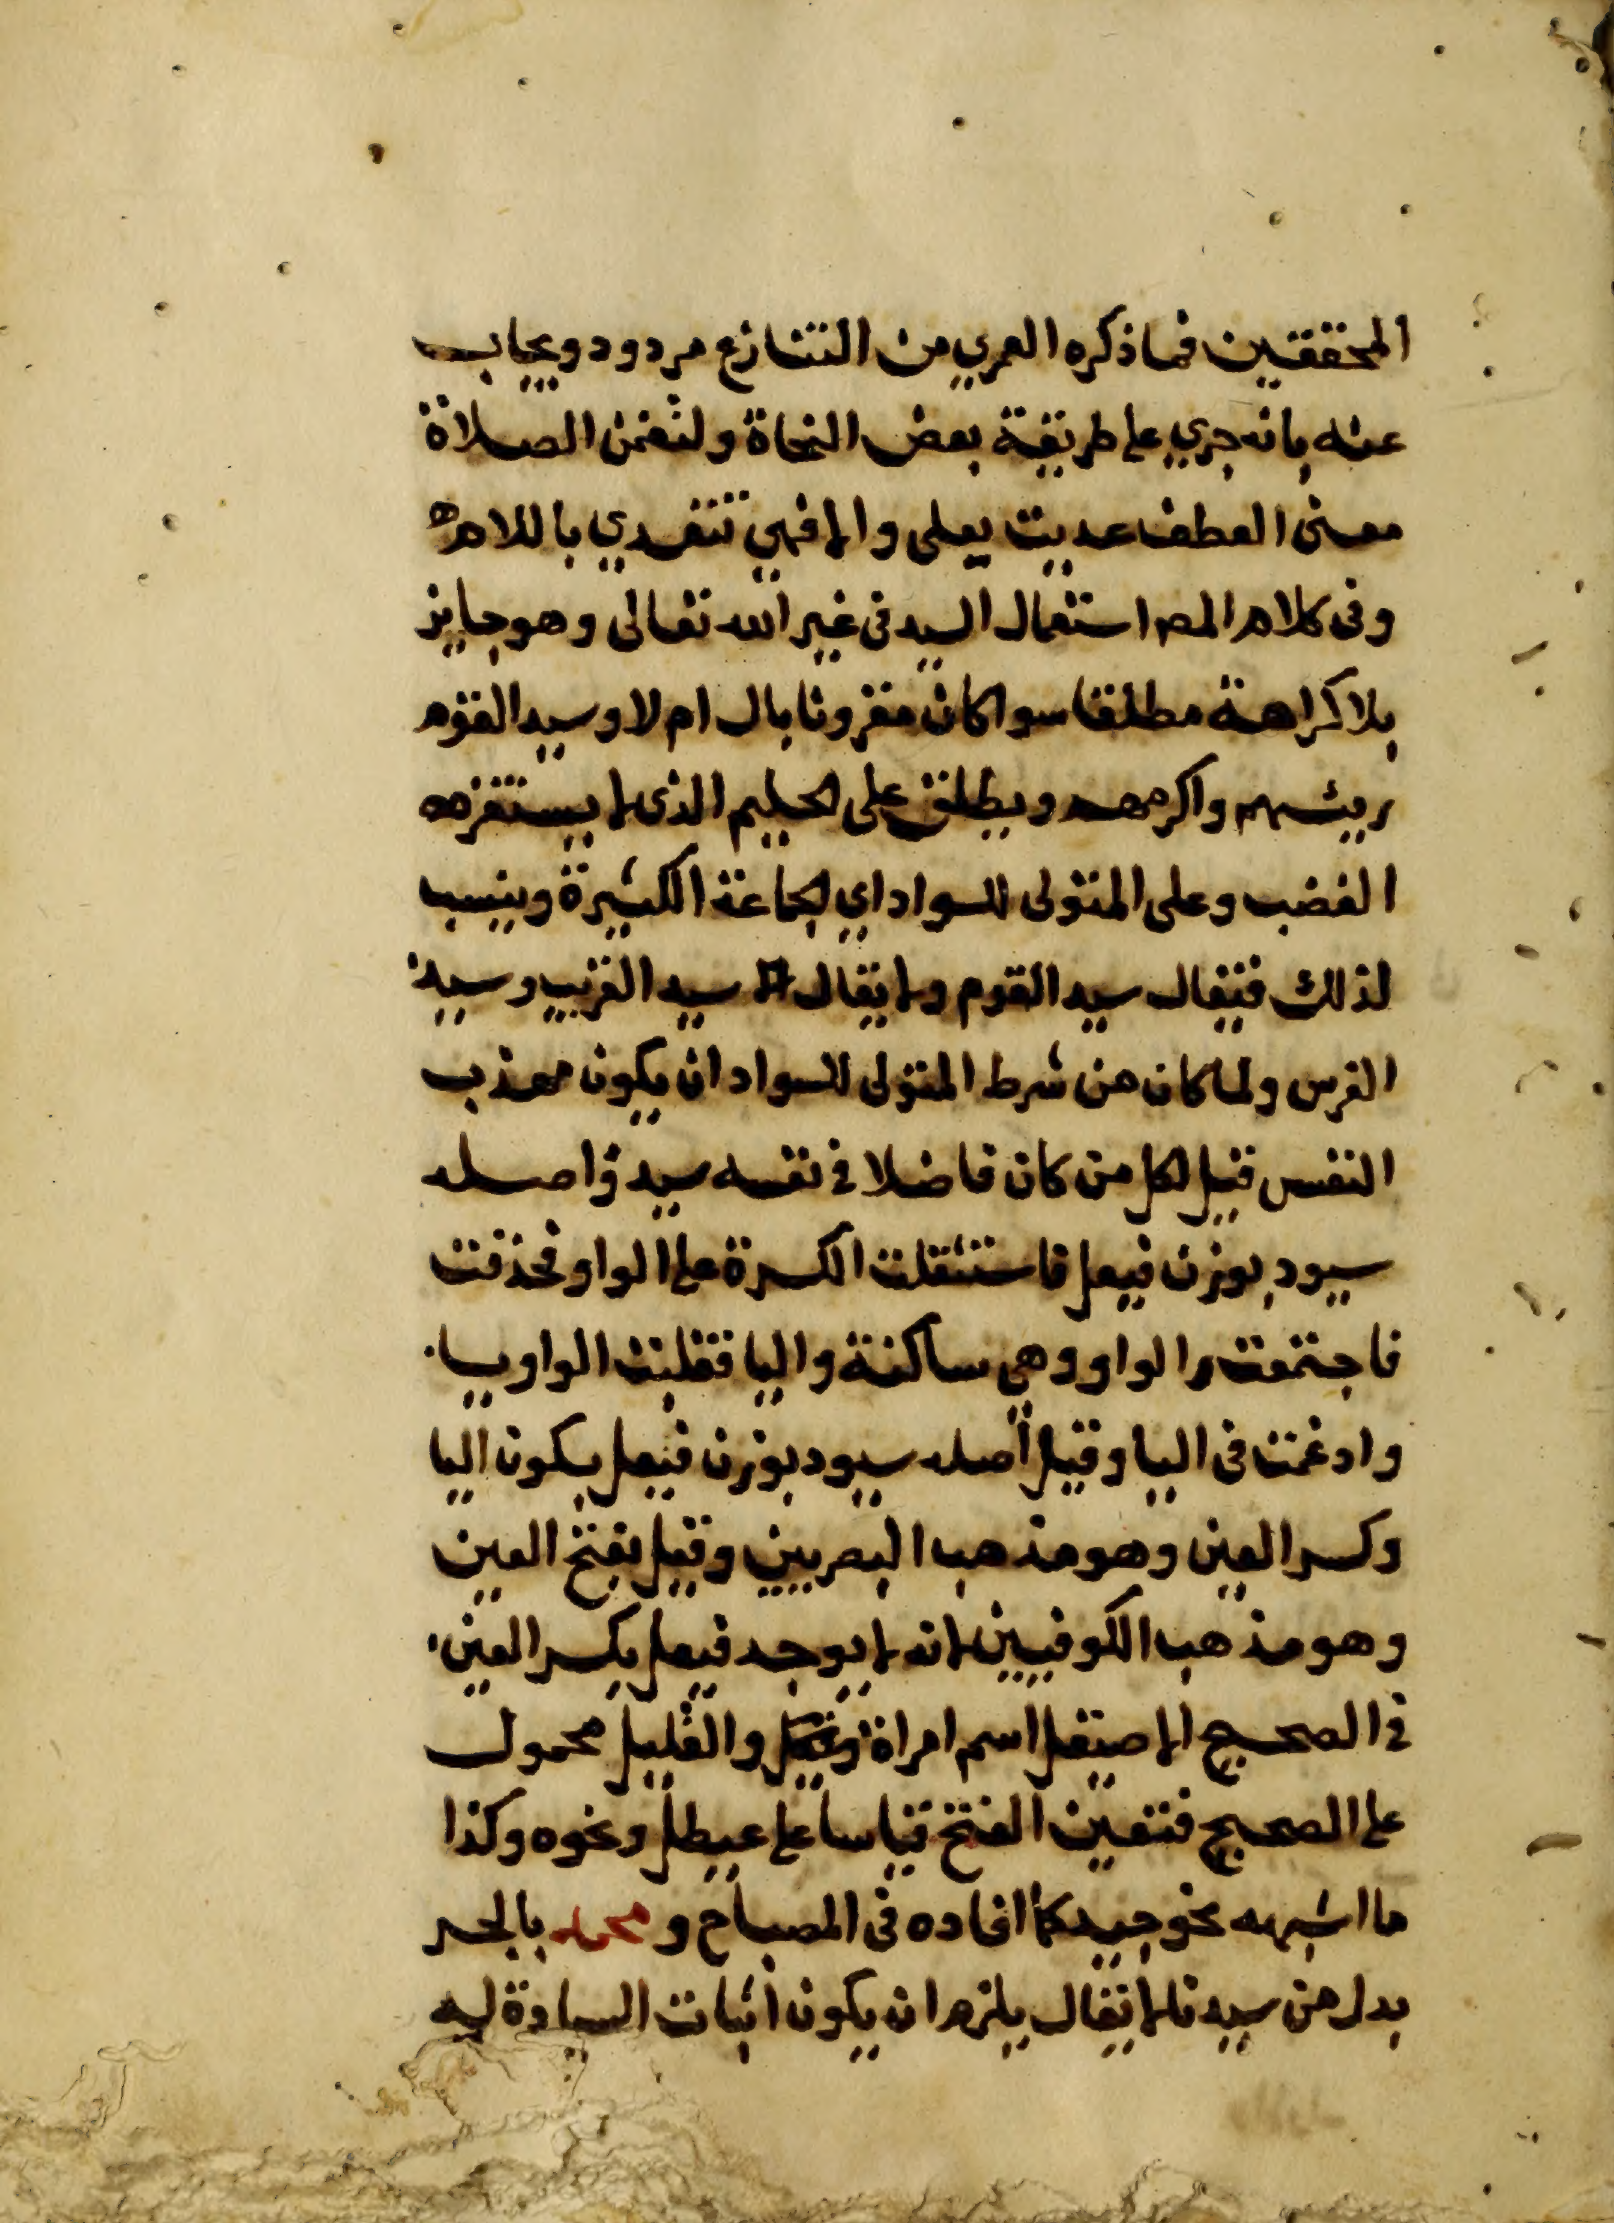 المحققين فما ذكره العمري من التنازع مردود ويجاب
عنه بانه جري على طريقة بعض النحاة ولتضمن الصلاة
معنى العطف عديت بعلى والا فهي تتعدي باللام
وفى كلام المصه استعمال السيد فى غير الله تعالى وهو جايز
بلا كراهة مطلقا سوا كان مقرونا بال ام لا وسيد القوم
ريئسهم واكرمهم ويطلق على الحليم الذى لا يستفزه
الغضب وعلى المتولى للسواد اي الجماعة الكثيرة وينسب
لذلك فيقال سيد القوم ولا يقال سيد الغريب وسيد
الفرس ولما كان من شرط المتولى للسواد ان يكون مهذب
النفس قيل لكل من كان فاضلا في نفسه سيد واصله
سيود بوزن فيعل فاستثقلت الكسرة على الواو فحذفت
فاجتمعت الواو وهي ساكنة واليا فقلبت الواو يا
وادغمت فى اليا وقيل أصله سيود بوزن فيعل بسكون اليا
وكسر العين وهو مذهب البصريين وقيل بفتح العين
وهو مذهب الكوفيين لانه لا يوجد فيعل بكسر العين
في الصحيح الا صيقل اسم امراة والقليل محمول
على الصحيح فتعين الفتح قياسا على عيطل ونحوه وكذا
ما اشبهه نحو جيد كما افاده فى المصباح و محمد بالجر
بدل من سيدنا لا يقال يلزم ان يكون اثبات السيادة ليه